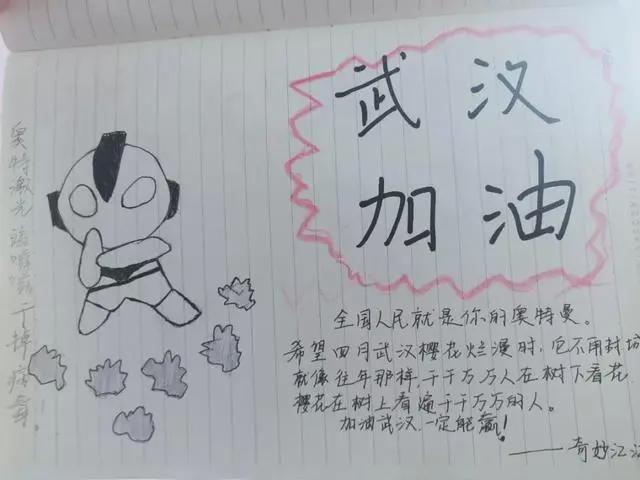 奥特激光 滋滋滋 干掉病毒!
武汉
加油
全国人民就是你的奥特曼。
希望四月武汉樱花烂漫时,它不用封城
就像往年那样,千千万万人在树下看花
樱花在树上看遍千千万万的人。
加油武汉一定能赢!
——奇妙江江